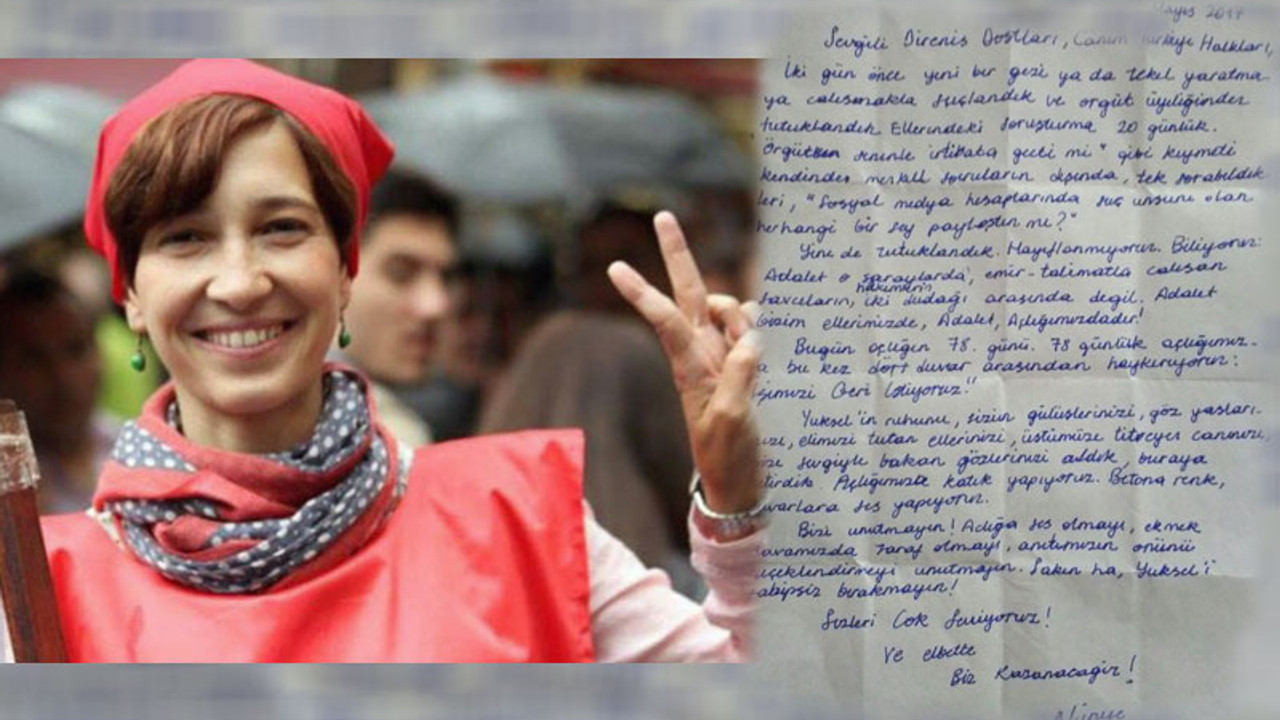 Mayıs 2017
Sevgili Direniş Dostları, Canım Türkiye Halkları,
İki gün önce yeni bir gezi ya da tekel yaratma
ya çalışmakla suçlandık ve örgüt üyeliğinden
tutuklandık. Ellerindeki soruşturma 20 günlük.
Örgütten seninle irtibata geçti mi" gibi kıymeti
kendinden menkul soruların dışında, tek sorabildik
leri, "Sosyal medya hesaplarında suç unsuru olan
herhangi bir şey paylaştın mı?"
Yine de tutuklandık. Hayıflanmıyoruz. Biliyoruz:
Adalet o saraylarda, emir-talimatla çalışan
savcıların, hakimlerin iki dudağı arasında değil. Adalet
bizim ellerimizde, Adalet, Açlığımızdadır!
Bugün açlığın 78. günü. 78 günlük açlığımız-
a bu kez dört duvar arasından haykırıyoruz:
şimizi Geri İstiyoruz!"
Yüksel'in ruhunu, sizin gülüşlerinizi, göz yaşları-
ızı, elimizi tutan ellerinizi, üstümüze titreyen canınızı,
ize sevgiyle bakan gözlerinizi aldık, buraya
tirdik. Açlığımıza katık yapıyoruz. Betona renk,
uvarlara ses yapıyoruz.
Bizi unutmayın! Açlığa ses olmayı, ekmek
avamızda taraf olmayı, anıtımızın önünü
içeklendirmeyi unutmayın. Sakın ha, Yüksel'i
ahipsiz bırakmayın!
Sizleri Çok Seviyoruz!
Ve elbette
Biz Kazanacağız!
Nuriye